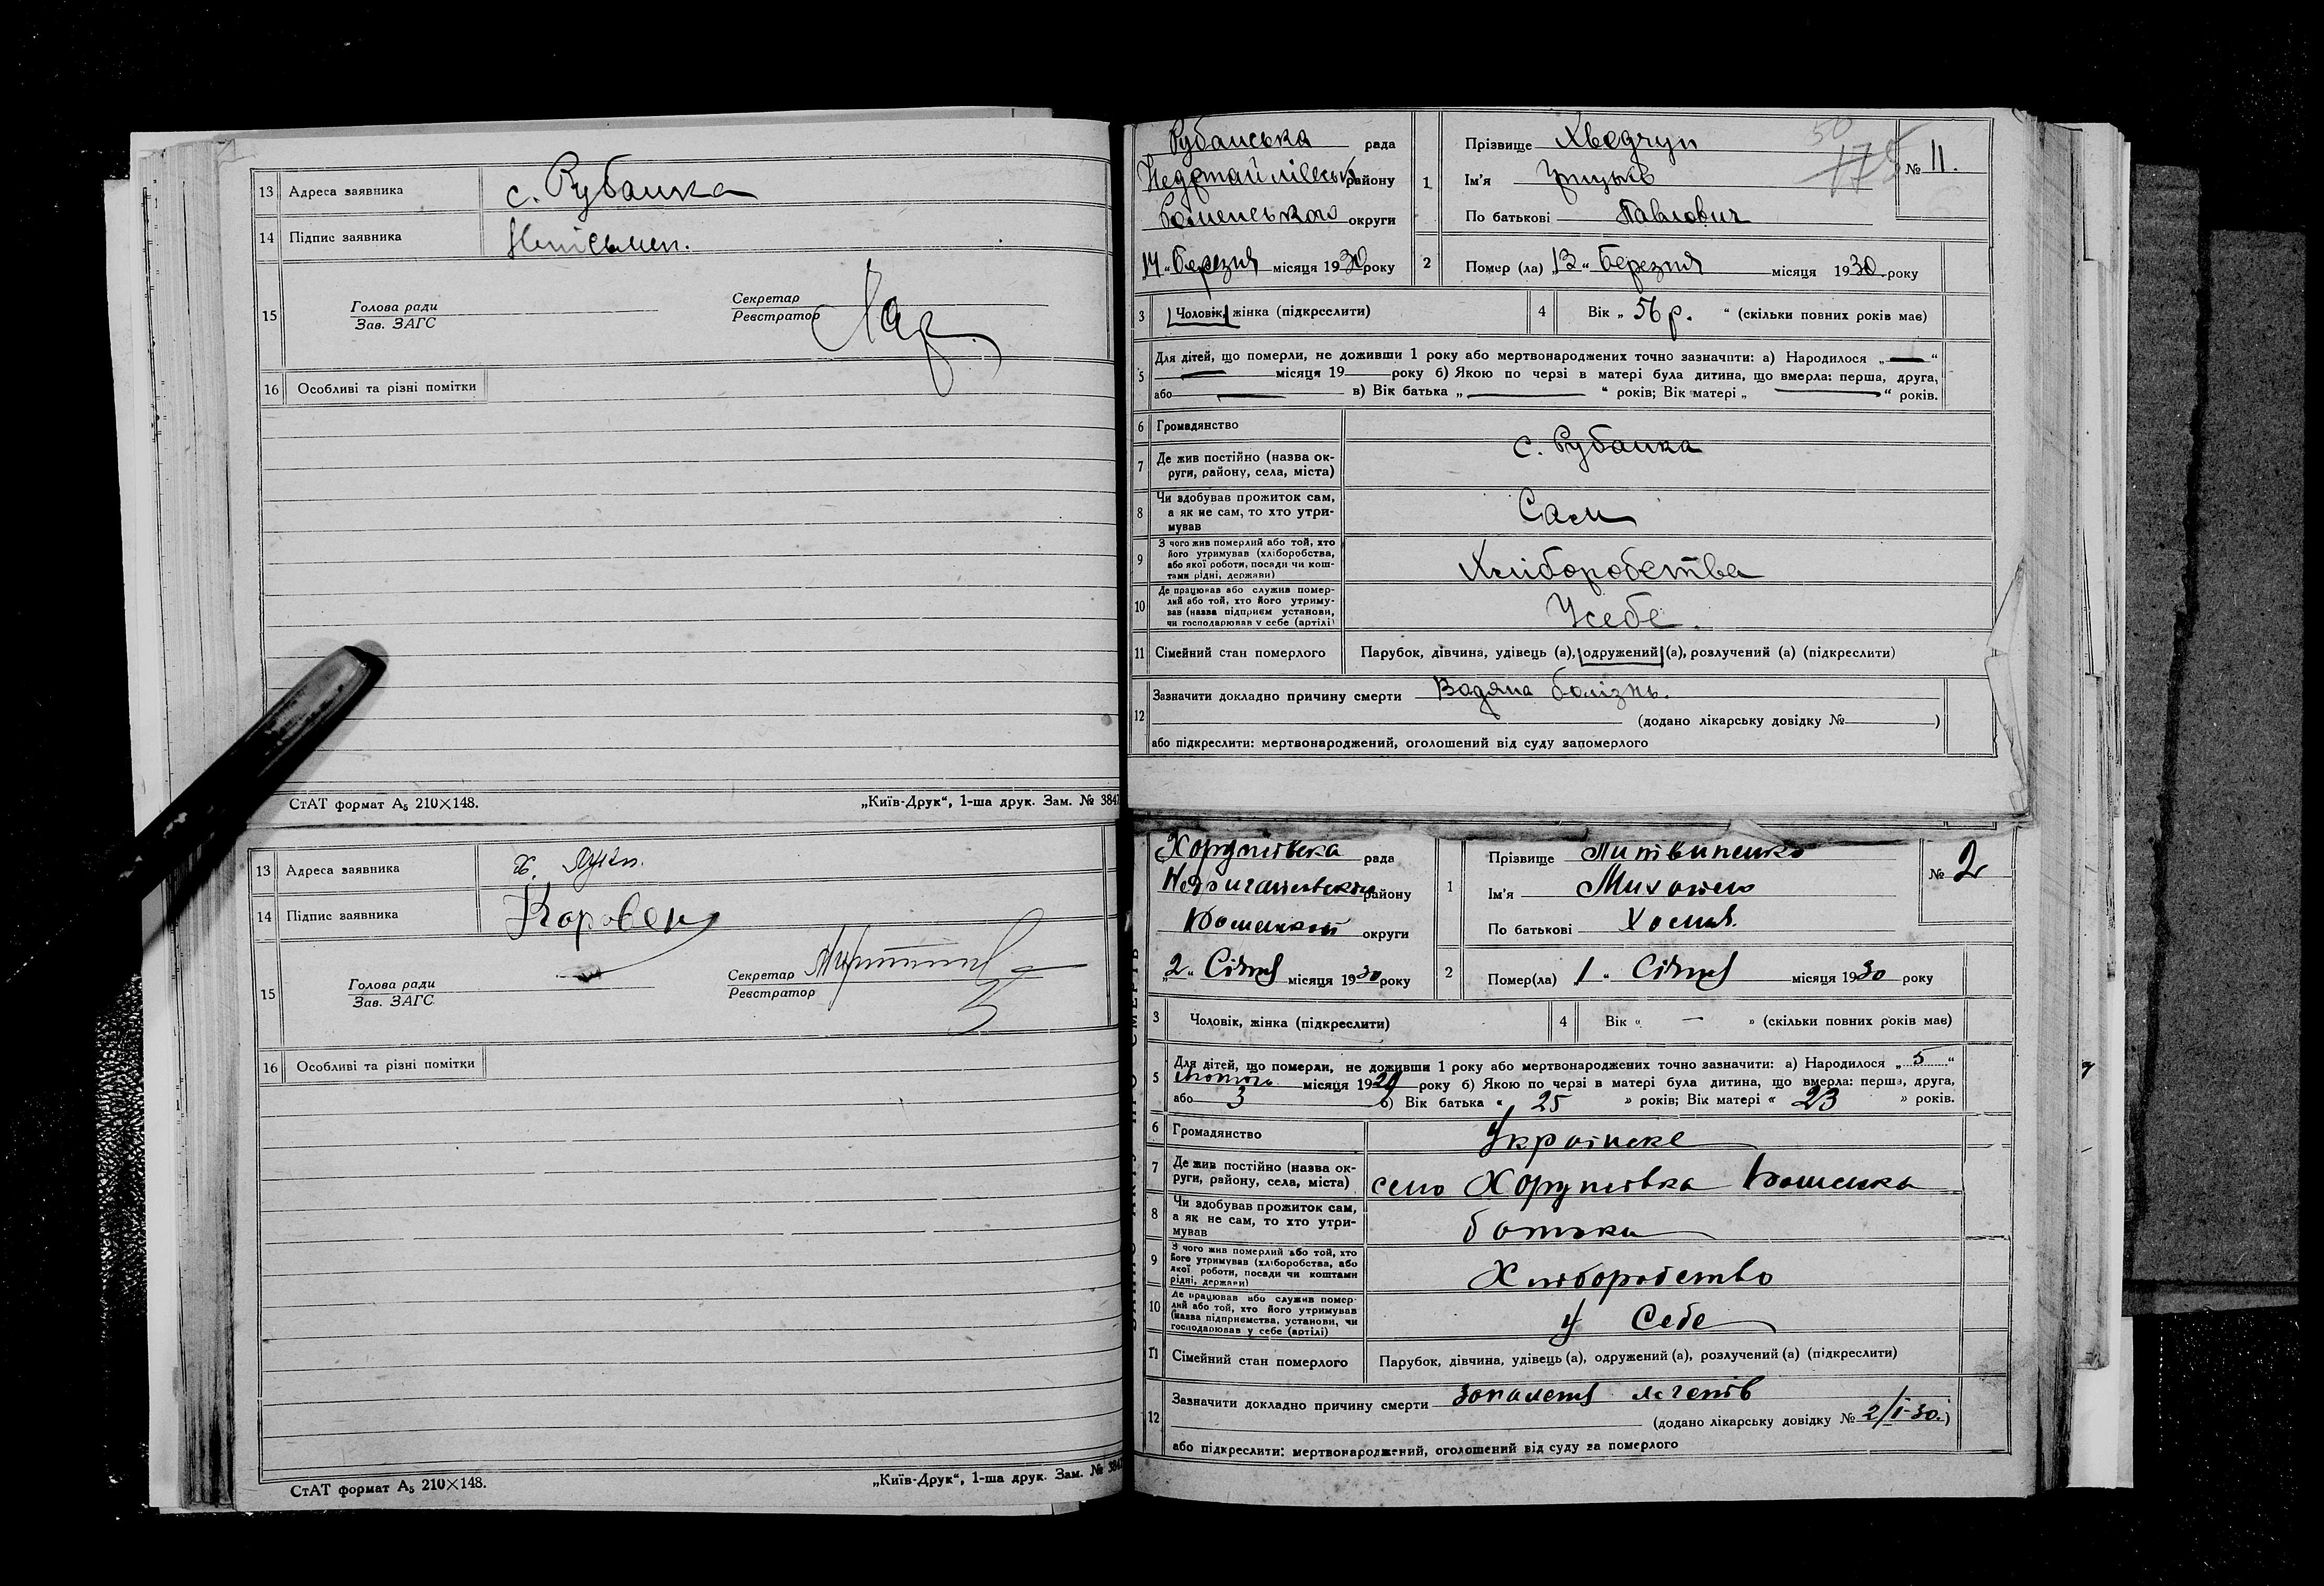 13 Адреса заявника с. Рубанка
14 Підпис заявника Неписьмен.
15 Голова ради
Зав. ЗАГС
Секретар
Реєстратор
16 Особливі та різні помітки
СтАТ формат А₅ 210×148. „Київ-Друк“, 1-ша друк. Зам. № 384
13 Адреса заявника х.
14 Підпис заявника Коровен
15 Голова ради
Зав. ЗАГС
Секретар
Реєстратор
16 Особливі та різні помітки
СтАТ формат А₅ 210×148. „Київ-Друк“, 1-ша друк. Зам. № 384
Рубанська рада
району
Роменського округи
14 „ березня місяця 1930 року
1 Прізвище Хведчун
Ім'я Грицько
По батькові Павлович
50
175
№ 11.
2 Помер (ла) „13“ березня місяця 1930 року
3 Чоловік, жінка (підкреслити) 4 Вік „ 56 р. “ (скільки повних років має)
5 Для дітей, що померли, не доживши 1 року або мертвонароджених точно зазначити: а) Народилося „ — “
— місяця 19 — року б) Якою по черзі в матері була дитина, що вмерла: перша, друга,
або — в) Вік батька „ — “ років; Вік матері „ — “ років.
6 Громадянство
7 Де жив постійно (назва ок-
руги, району, села, міста) с. Рубанка
8 Чи здобував прожиток сам,
а як не сам, то хто утри-
мував Сам
9 З чого жив померлий або той, хто
його утримував (хліборобства,
або якої роботи, посади чи кош-
тами рідні, держави) Хліборобства
10 Де працював або служив помер-
лий або той, хто його утриму-
вав (назва підприєм установи,
чи господарював у себе (артілі) Усебе.
11 Сімейний стан померлого Парубок, дівчина, удівець (а), одружений (а), розлучений (а) (підкреслити)
12 Зазначити докладно причину смерти Вадяна болізнь.
(додано лікарську довідку № )
або підкреслити: мертвонароджений, оголошений від суду запомерлого
Хоружівска рада
району
округи
„ 2 „ Січня місяця 1930 року
1 Прізвище Литвиненко
Ім'я Михайло
По батькові Хомич.
№ 2
2 Помер(ла) 1 „ Січня місяця 1930 року
3 Чоловік, жінка (підкреслити) 4 Вік « — » (скільки повних років має)
5 Для дітей, що померли, не доживши 1 року або мертвонароджених точно зазначити: а) Народилося „ 5 “
лютого місяця 1929 року б) Якою по черзі в матері була дитина, що вмерла: перша, друга,
або 3 б) Вік батька « 25 » років; Вік матері « 23 » років.
6 Громадянство Українске
7 Де жив постійно (назва ок-
руги, району, села, міста) село Хоружівка
8 Чи здобував прожиток сам,
а як не сам, то хто утри-
мував батьки
9 З чого жив померлий або той, хто
його утримував (хліборобства, або
якої роботи, посади чи коштами
рідні, держави) Хліборобство
10 Де працював або служив помер-
лий або той, хто його утримував
(назва підприємства, установи, чи
господарював у себе (артілі) у Себе
11 Сімейний стан померлого Парубок, дівчина, удівець (а), одружений (а), розлучений (а) (підкреслити)
12 Зазначити докладно причину смерти запалення легенів
(додано лікарську довідку № 2/I-30.)
або підкреслити: мертвонароджений, оголошений від суду за померлого